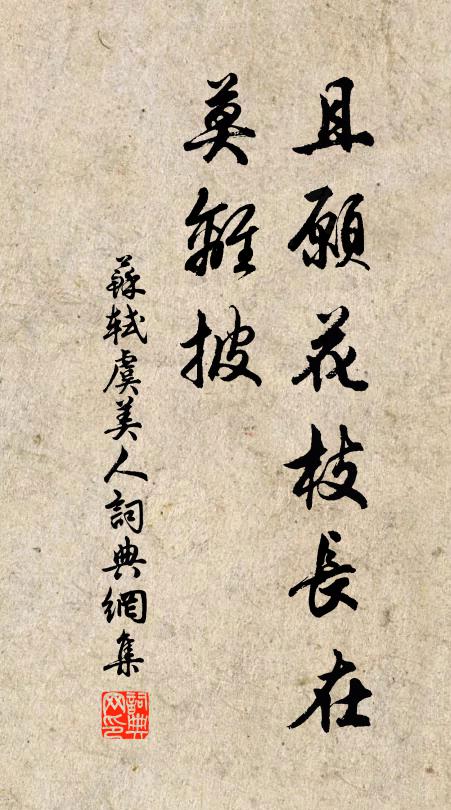 且願花枝長在
莫離披
蘇軾虞美人詞典網集
詞典
网印